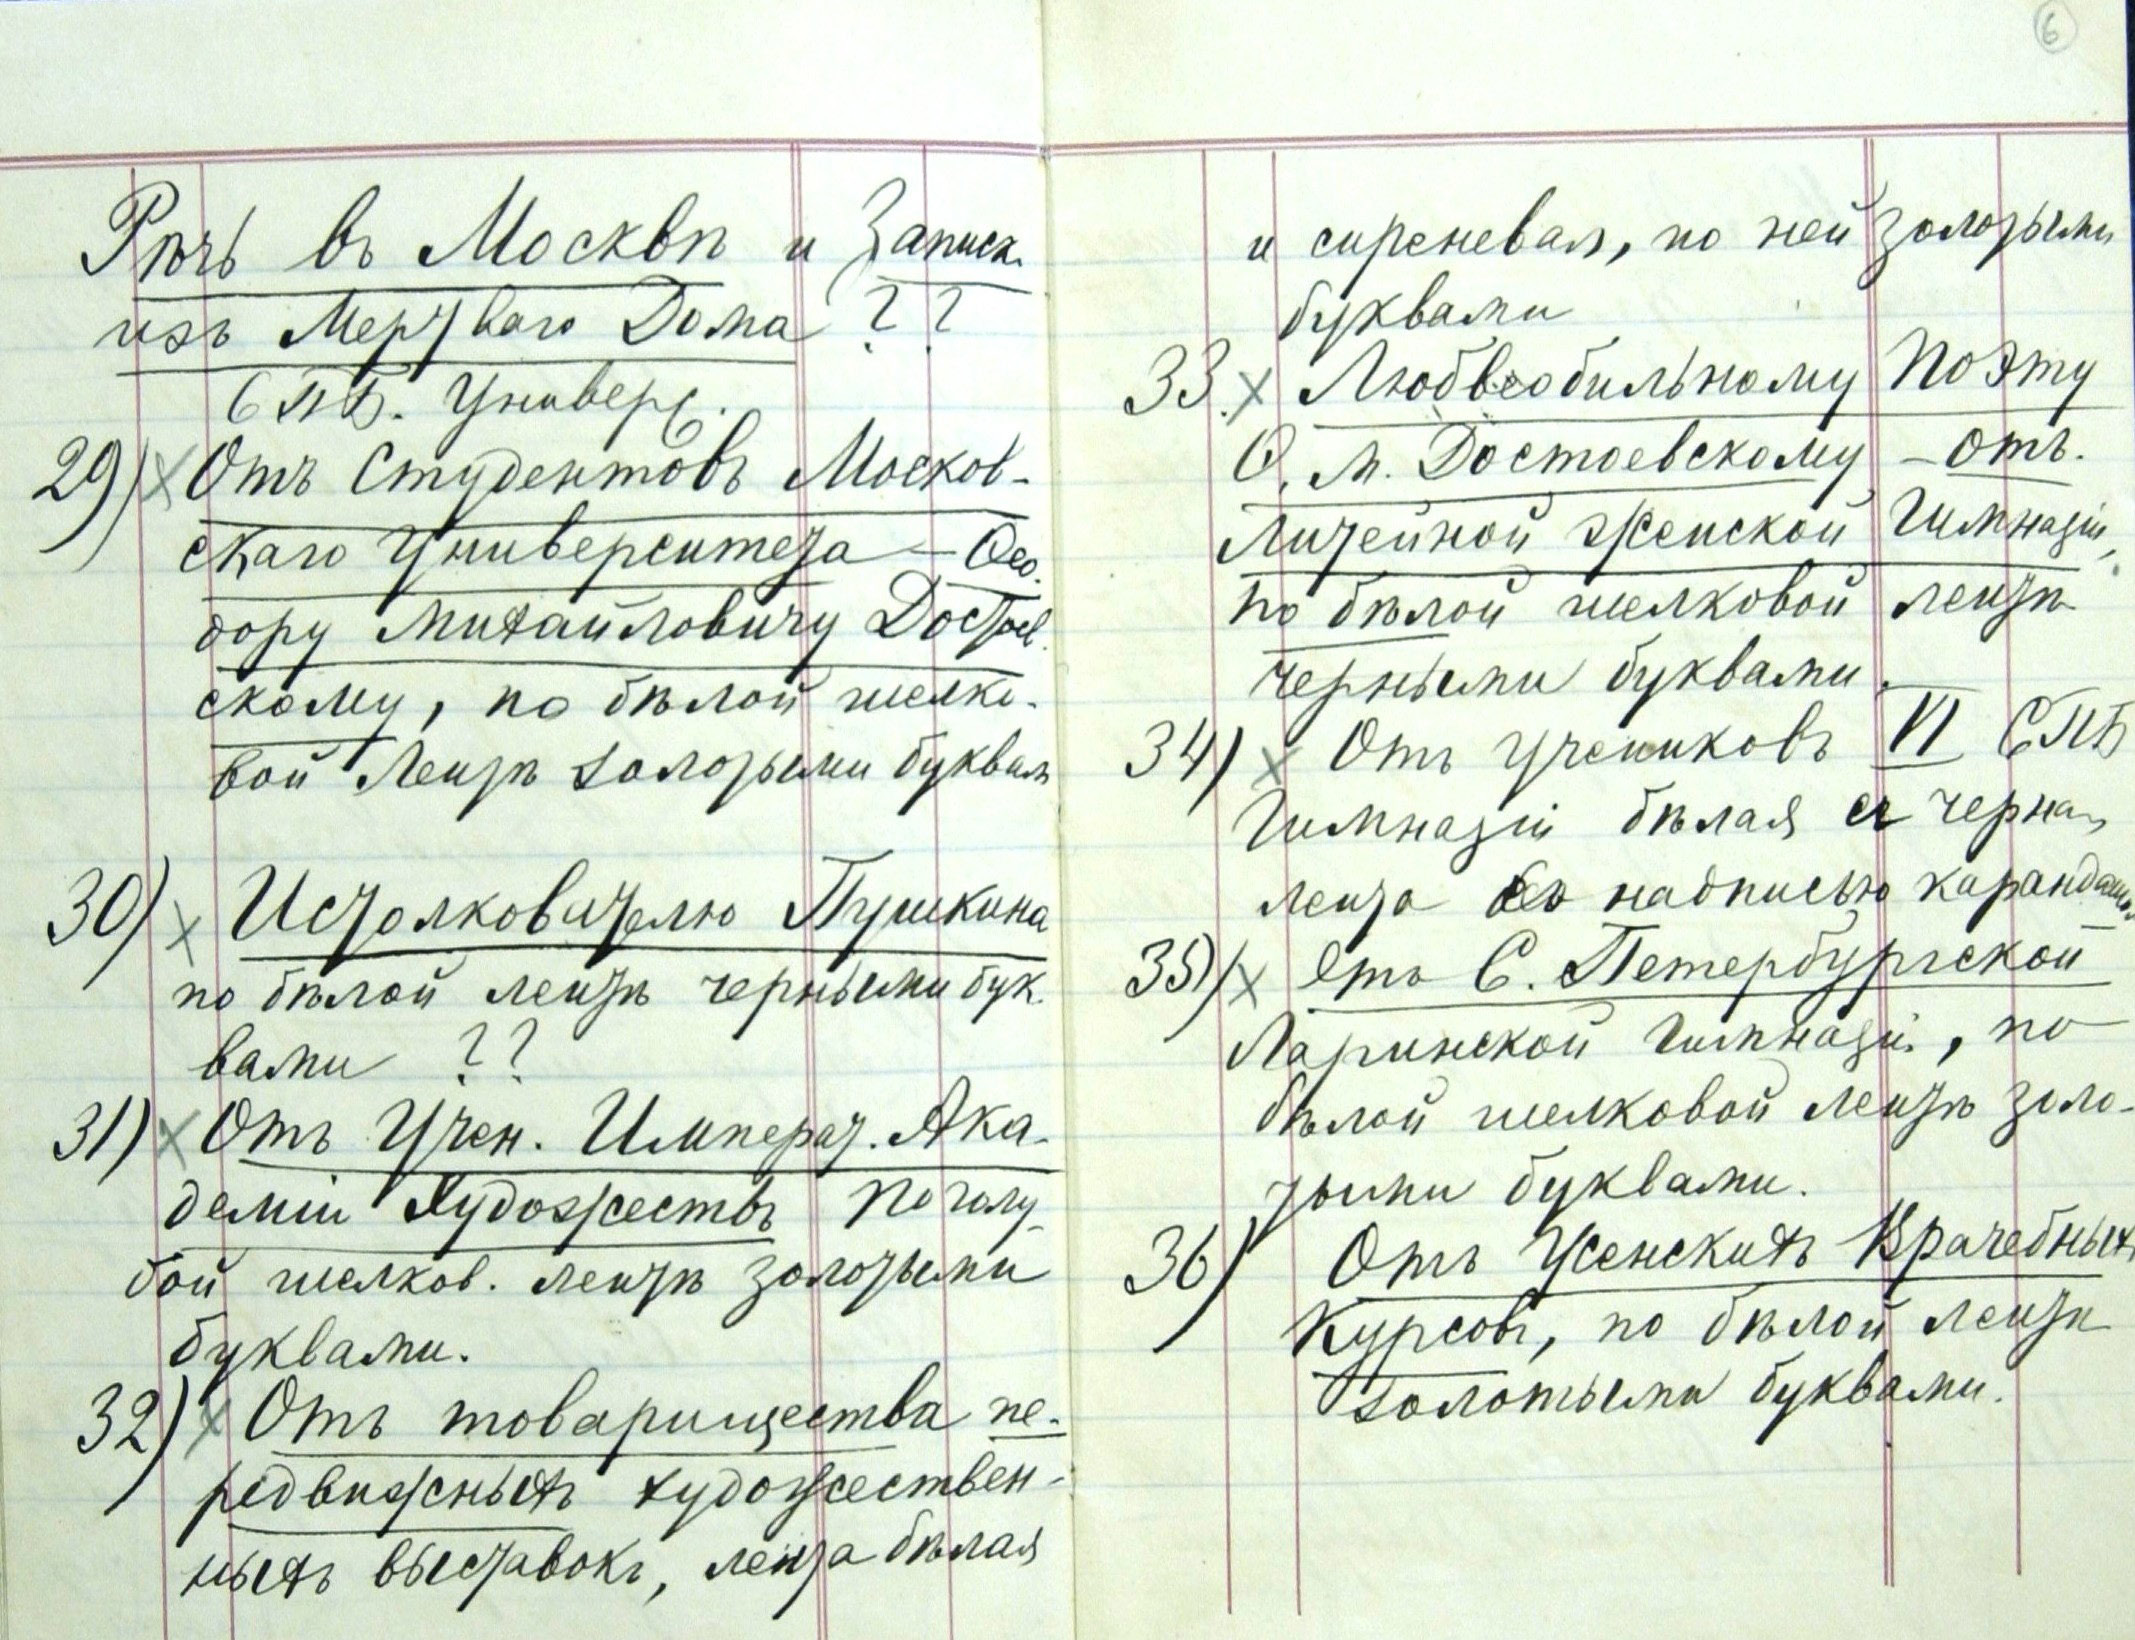 Рѣчь въ Москвѣ и Записк.
изъ Мертваго Дома ??
СПБ. Универс.
29) х Отъ Студентовъ Москов-
скаго Университета – Ѳео-
дору Михайловичу Достоев-
скому, по бѣлой шелко-
вой Лентѣ золотыми буквам
30) х Истолкователю Пушкина
по бѣлой лентѣ черными бук-
вами ??
31) х Отъ Учен. Императ. Ака-
деміи Художествъ по голу-
бой шелков. лентѣ золотыми
буквами.
32) х Отъ товарищества пе-
редвижныхъ художествен-
ныхъ выставокъ, лента бѣлая
6
и сиреневая, по ней золотыми
буквами
33. х Любвеобильному Поэту
Ѳ. М. Достоевскому – отъ.
Литейной женской Гимназіи,
по бѣлой шелковой лентѣ
черными буквами.
34) х Отъ Учениковъ VI СПБ
Гимназіи бѣлая и черная
лента съ надписью карандашом
35) х Отъ С. Петербургской
Ларинской Гимназіи, по
бѣлой шелковой лентѣ золо-
тыми буквами.
36) Отъ Женскихъ Врачебныхъ
Курсовъ, по бѣлой лентѣ
золотыми буквами.